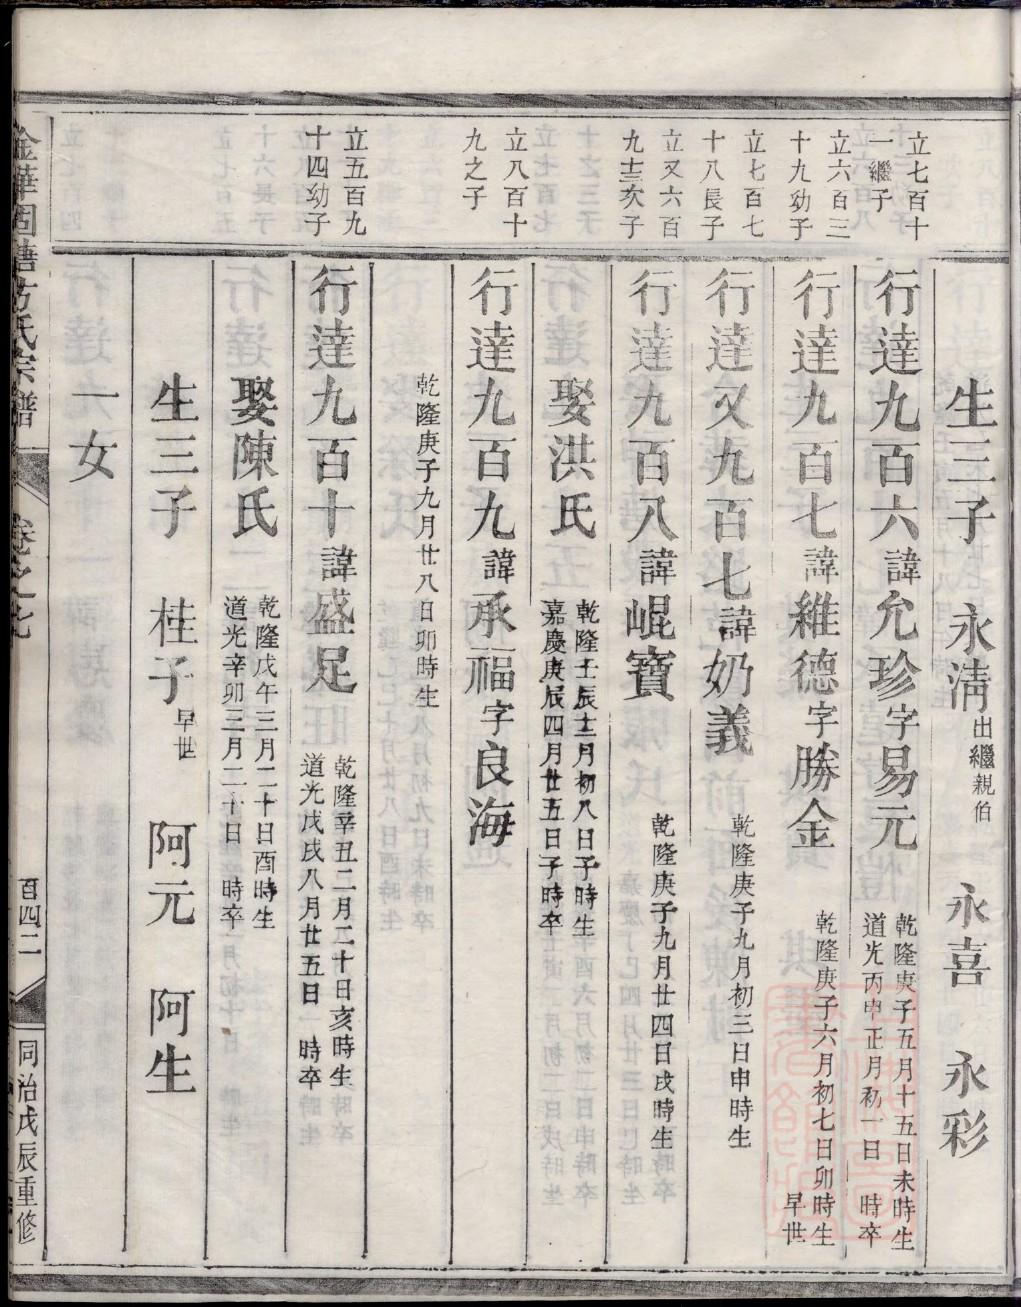 生三子 永淸出繼親伯 永喜 永彩
立七百十一繼子
行達九百六諱允珍字易元 乾隆庚子五月十五日未時生 道光丙申正月初一日 時卒
立六百三十九幼子
行達九百七諱維德字勝金 乾隆庚子六月初七日卯時生 早世
立七百七十八長子
行達又九百七諱奶義 乾隆庚子九月初三日申時生
立又六百九十三次子
行達九百八諱崐寶 乾隆庚子九月廿四日戌時生
娶洪氏 乾隆壬辰十二月初八日子時生 嘉慶庚辰四月廿五日子時卒
立八百十九之子
行達九百九諱承福字良海
乾隆庚子九月廿八日卯時生
立五百九十四幼子
行達九百十諱盛足 乾隆辛丑二月二十日亥時生 道光戊戌八月廿五日 時卒
娶陳氏 乾隆戊午三月二十日酉時生 道光辛卯三月二十日 時卒
生三子 桂子早世 阿元 阿生
一女
金華 方氏宗譜 卷之七 百四二 同治戊辰重修